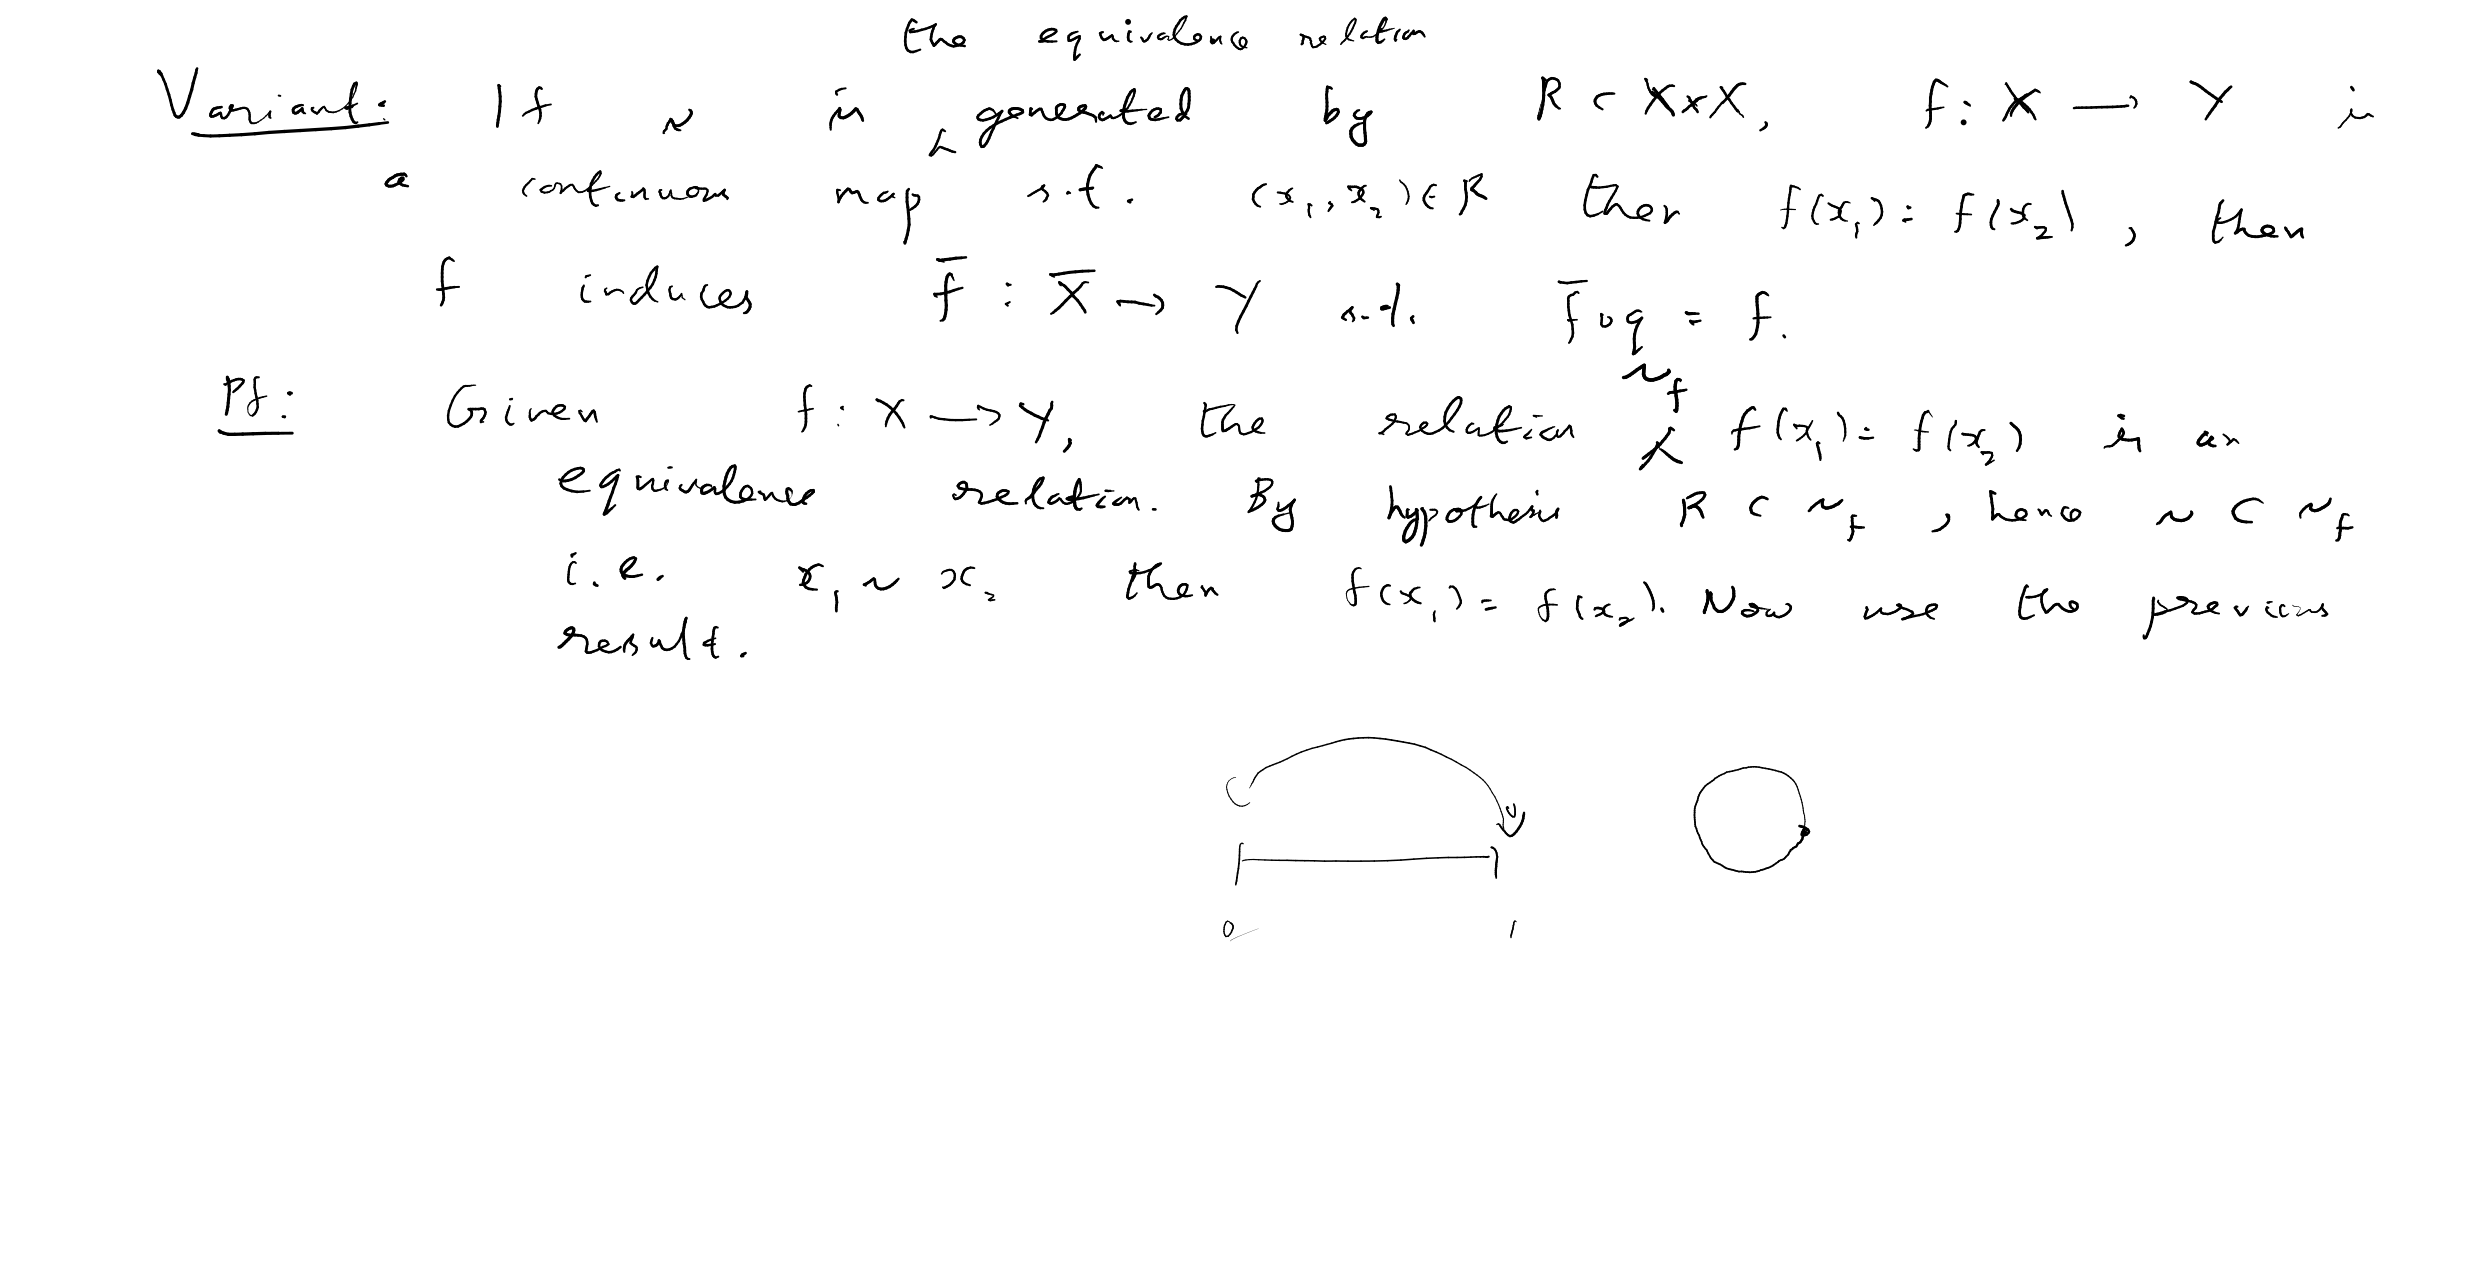 the equivalence relation
Variant: If ~ is ⁁ generated by R ⊂ X×X, f: X → Y is
a continuous map s.t. (x₁, x₂) ∈ R then f(x₁) = f(x₂), then
f induces f̄ : X̄ → Y s.t. f̄ ∘ q = f.
~_f
Pf: Given f: X → Y, the relation ⁁ f(x₁) = f(x₂) is an
equivalence relation. By hypothesis R ⊂ ~_f, hence ~ ⊂ ~_f
i.e. x₁ ~ x₂ then f(x₁) = f(x₂). Now use the previous
result.
0 1